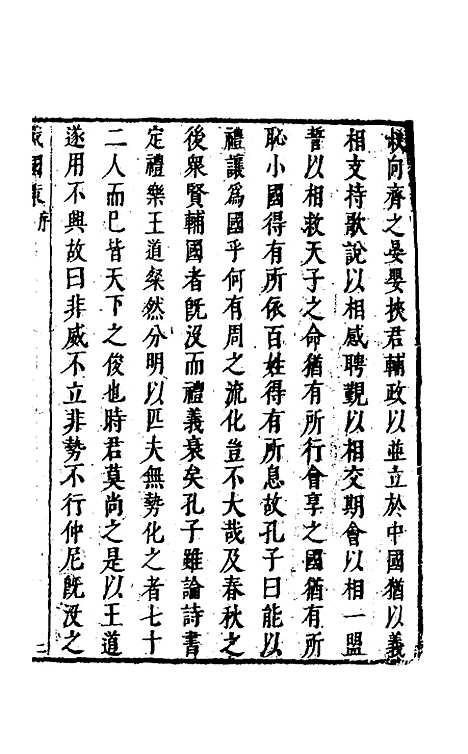 叔向齊之晏嬰挾君輔政以並立於中國猶以義
相支持歌說以相感聘覲以相交期會以相一盟
誓以相救天子之命猶有所行會享之國猶有所
恥小國得有所依百姓得有所息故孔子曰能以
禮讓爲國乎何有周之流化豈不大哉及春秋之
後衆賢輔國者旣沒而禮義衰矣孔子雖論詩書
定禮樂王道粲然分明以匹夫無勢化之者七十
二人而已皆天下之俊也時君莫尚之是以王道
遂用不興故曰非威不立非勢不行仲尼旣沒之
國策 序
二